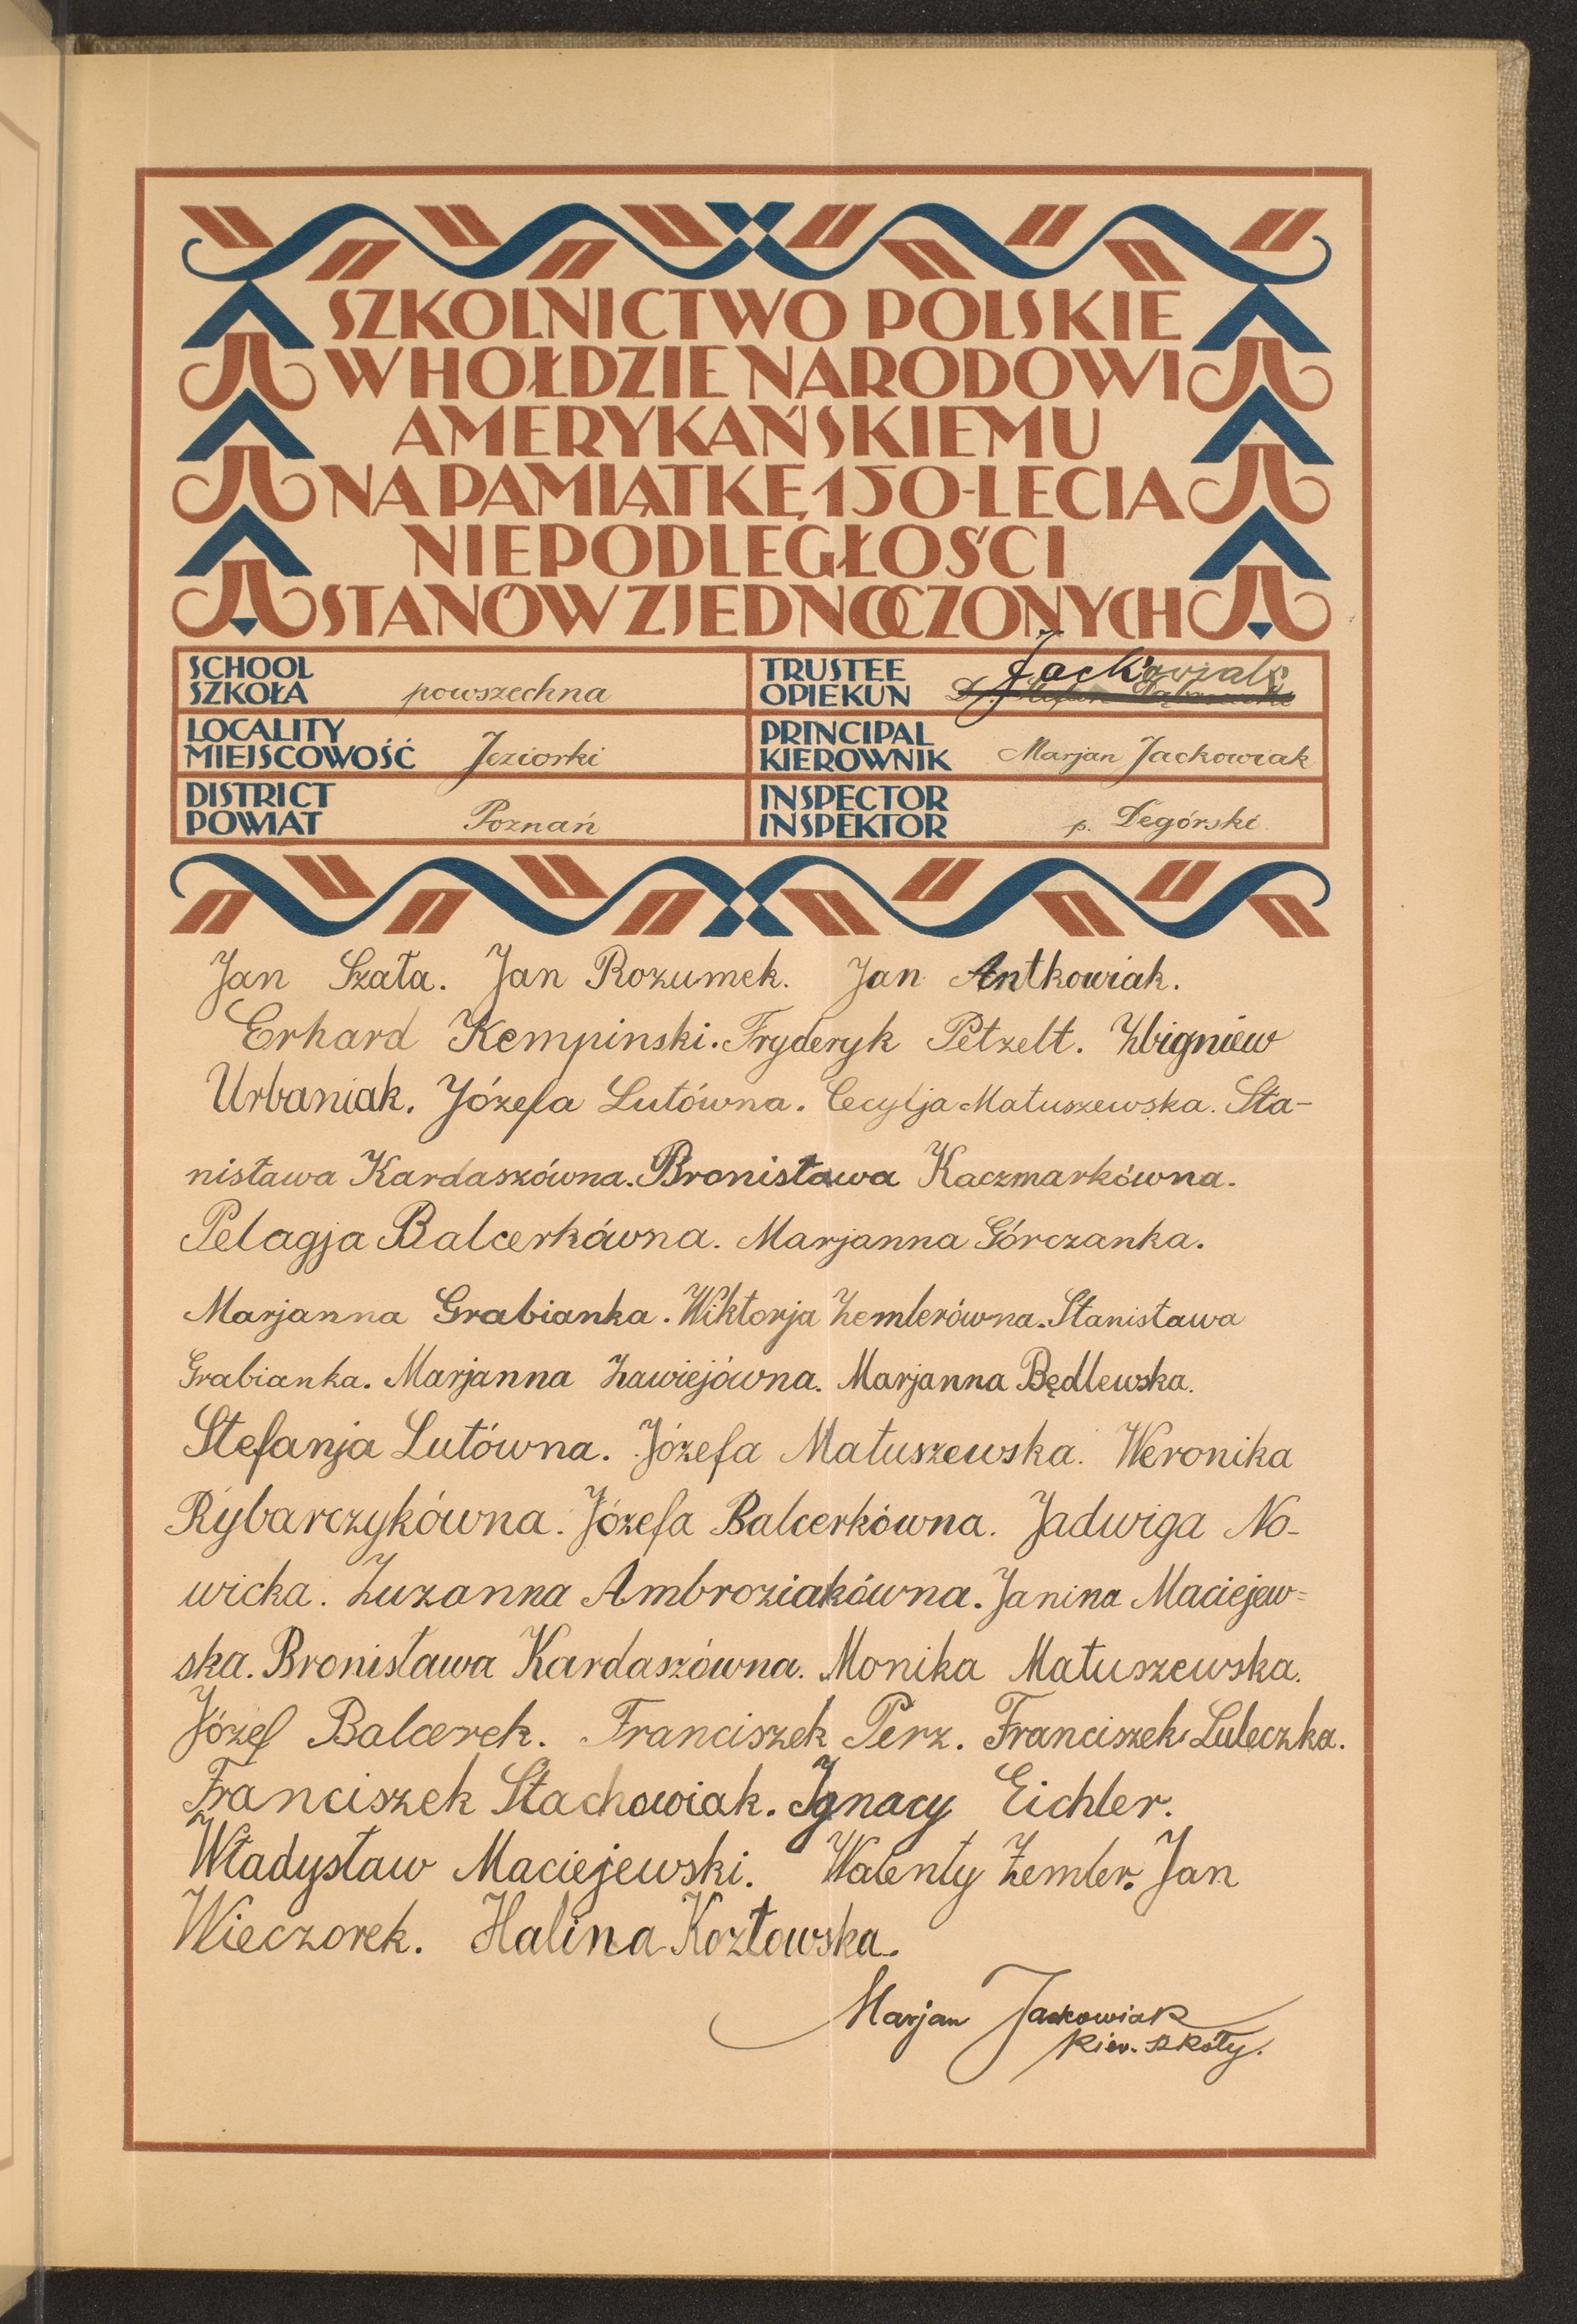 SZKOLNICTWO POLSKIE
W HOŁDZIE NARODOWI
AMERYKAŃSKIEMU
NA PAMIĄTKĘ 150-LECIA
NIEPODLEGŁOŚCI
STANÓW ZJEDNOCZONYCH
SCHOOL
SZKOŁA powszechna
TRUSTEE
OPIEKUN Jackowiak
LOCALITY
MIEJSCOWOŚĆ Jeziorki
PRINCIPAL
KIEROWNIK Marjan Jackowiak
DISTRICT
POWIAT Poznań
INSPECTOR
INSPEKTOR p. Degórski
Jan Szała. Jan Rozumek. Jan Antkowiak.
Erhard Kempinski. Fryderyk Petzelt. Zbigniew
Urbaniak. Józefa Lutówna. Cecylja Matuszewska. Sta-
nisława Kardaszówna. Bronisława Kaczmarkówna.
Pelagja Balcerkówna. Marjanna Górczanka.
Marjanna Grabianka. Wiktorja Zemlerówna. Stanisława
Grabianka. Marjanna Zawiejówna. Marjanna Będlewska.
Stefanja Lutówna. Józefa Matuszewska. Weronika
Rybarczykówna. Józefa Balcerkówna. Jadwiga No-
wicka. Zuzanna Ambroziakówna. Janina Maciejew=
ska. Bronisława Kardaszówna. Monika Matuszewska.
Józef Balcerek. Franciszek Perz. Franciszek Luleczka.
Franciszek Stachowiak. Ignacy Eichler.
Władysław Maciejewski. Walenty Zemler. Jan
Wieczorek. Halina Kozłowska.
Marjan Jackowiak
kier. szkoły.